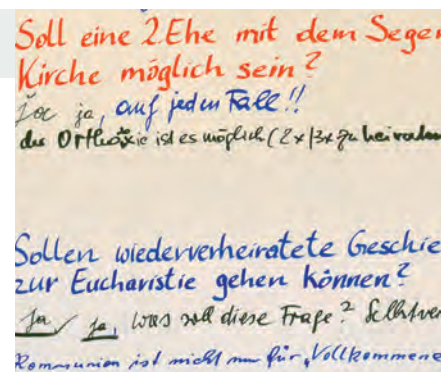 Soll eine 2.Ehe mit dem Segen
Kirche möglich sein?
ja, auf jeden Fall!!
der Orthoxie ist es möglich (2x/3x zu heiraten
Sollen wiederverheiratete Geschie
zur Eucharistie gehen können?
Ja ja, was soll diese Frage? Selbstver
Kommunion ist nicht nur für "Vollkommene